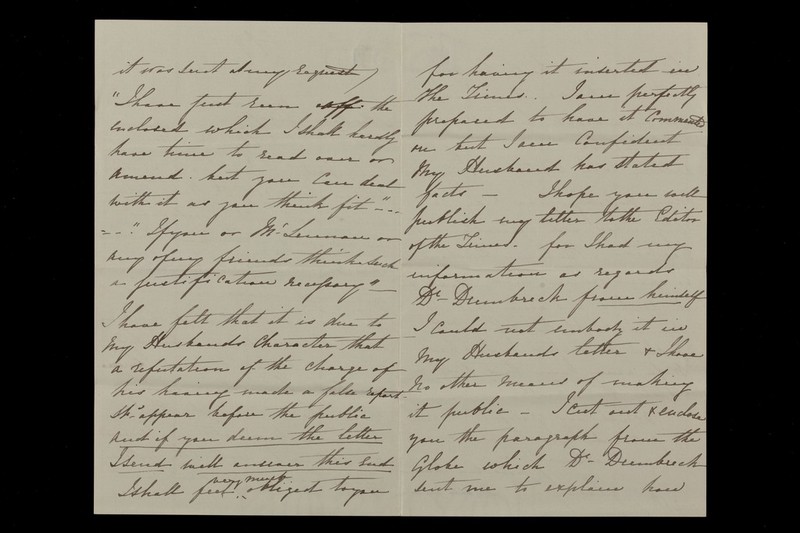 it was sent at my request /
"I have just run off the
enclosed which I shall hardly
have time to read over or
amend. but you can deal
with it as you think fit" -..
= - -." If you or Mr. Lennan or
any of my friends think such
a justification necessary" -
I have felt that it is due to
My Husbands Character that
a refutation of the charge of
his having made a false report
shd. appear before the public
and if you deem the letter
I send will answer this End
I shall feel very much obliged to you
for having it inserted in
The Times.. I am perfectly
prepared to have it Commented
on but I am Confident
My Husband has stated
facts - I hope you will
publish my letter to the Editor
of the Times. for I had my
information as regards
Dr. Dumbreck from himself
I could not embody it in
My Husbands letter & I have
No other means of making
it public - I cut out & enclose
you the paragraph from the
Globe which Dr. Dumbreck
sent me to explain how